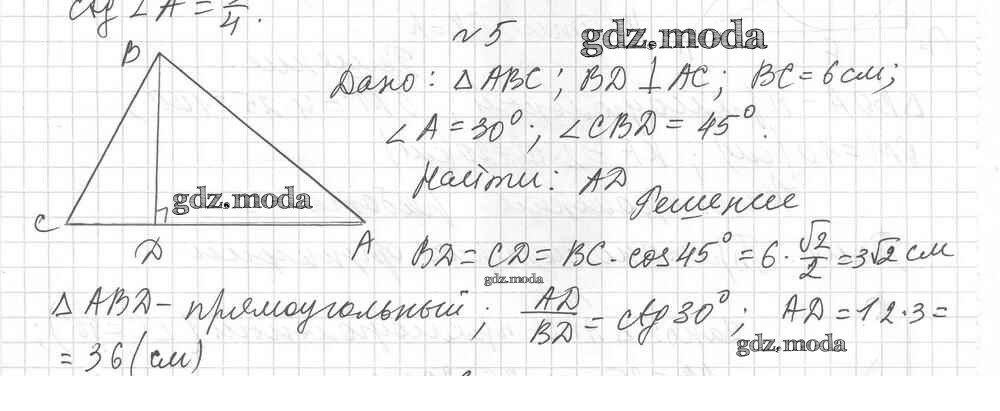 ctg ∠A = /4.
№5 gdz.moda
B
Дано: △ABC; BD ⊥ AC; BC = 6 см;
∠A = 30°; ∠CBD = 45°.
Найти: AD
gdz.moda
Решение
C D A
BD = CD = BC · cos 45° = 6 · √2/2 = 3√2 см
gdz.moda
△ABD – прямоугольный; AD/BD = ctg 30°; AD = 12 · 3 =
gdz.moda
= 36 (см)